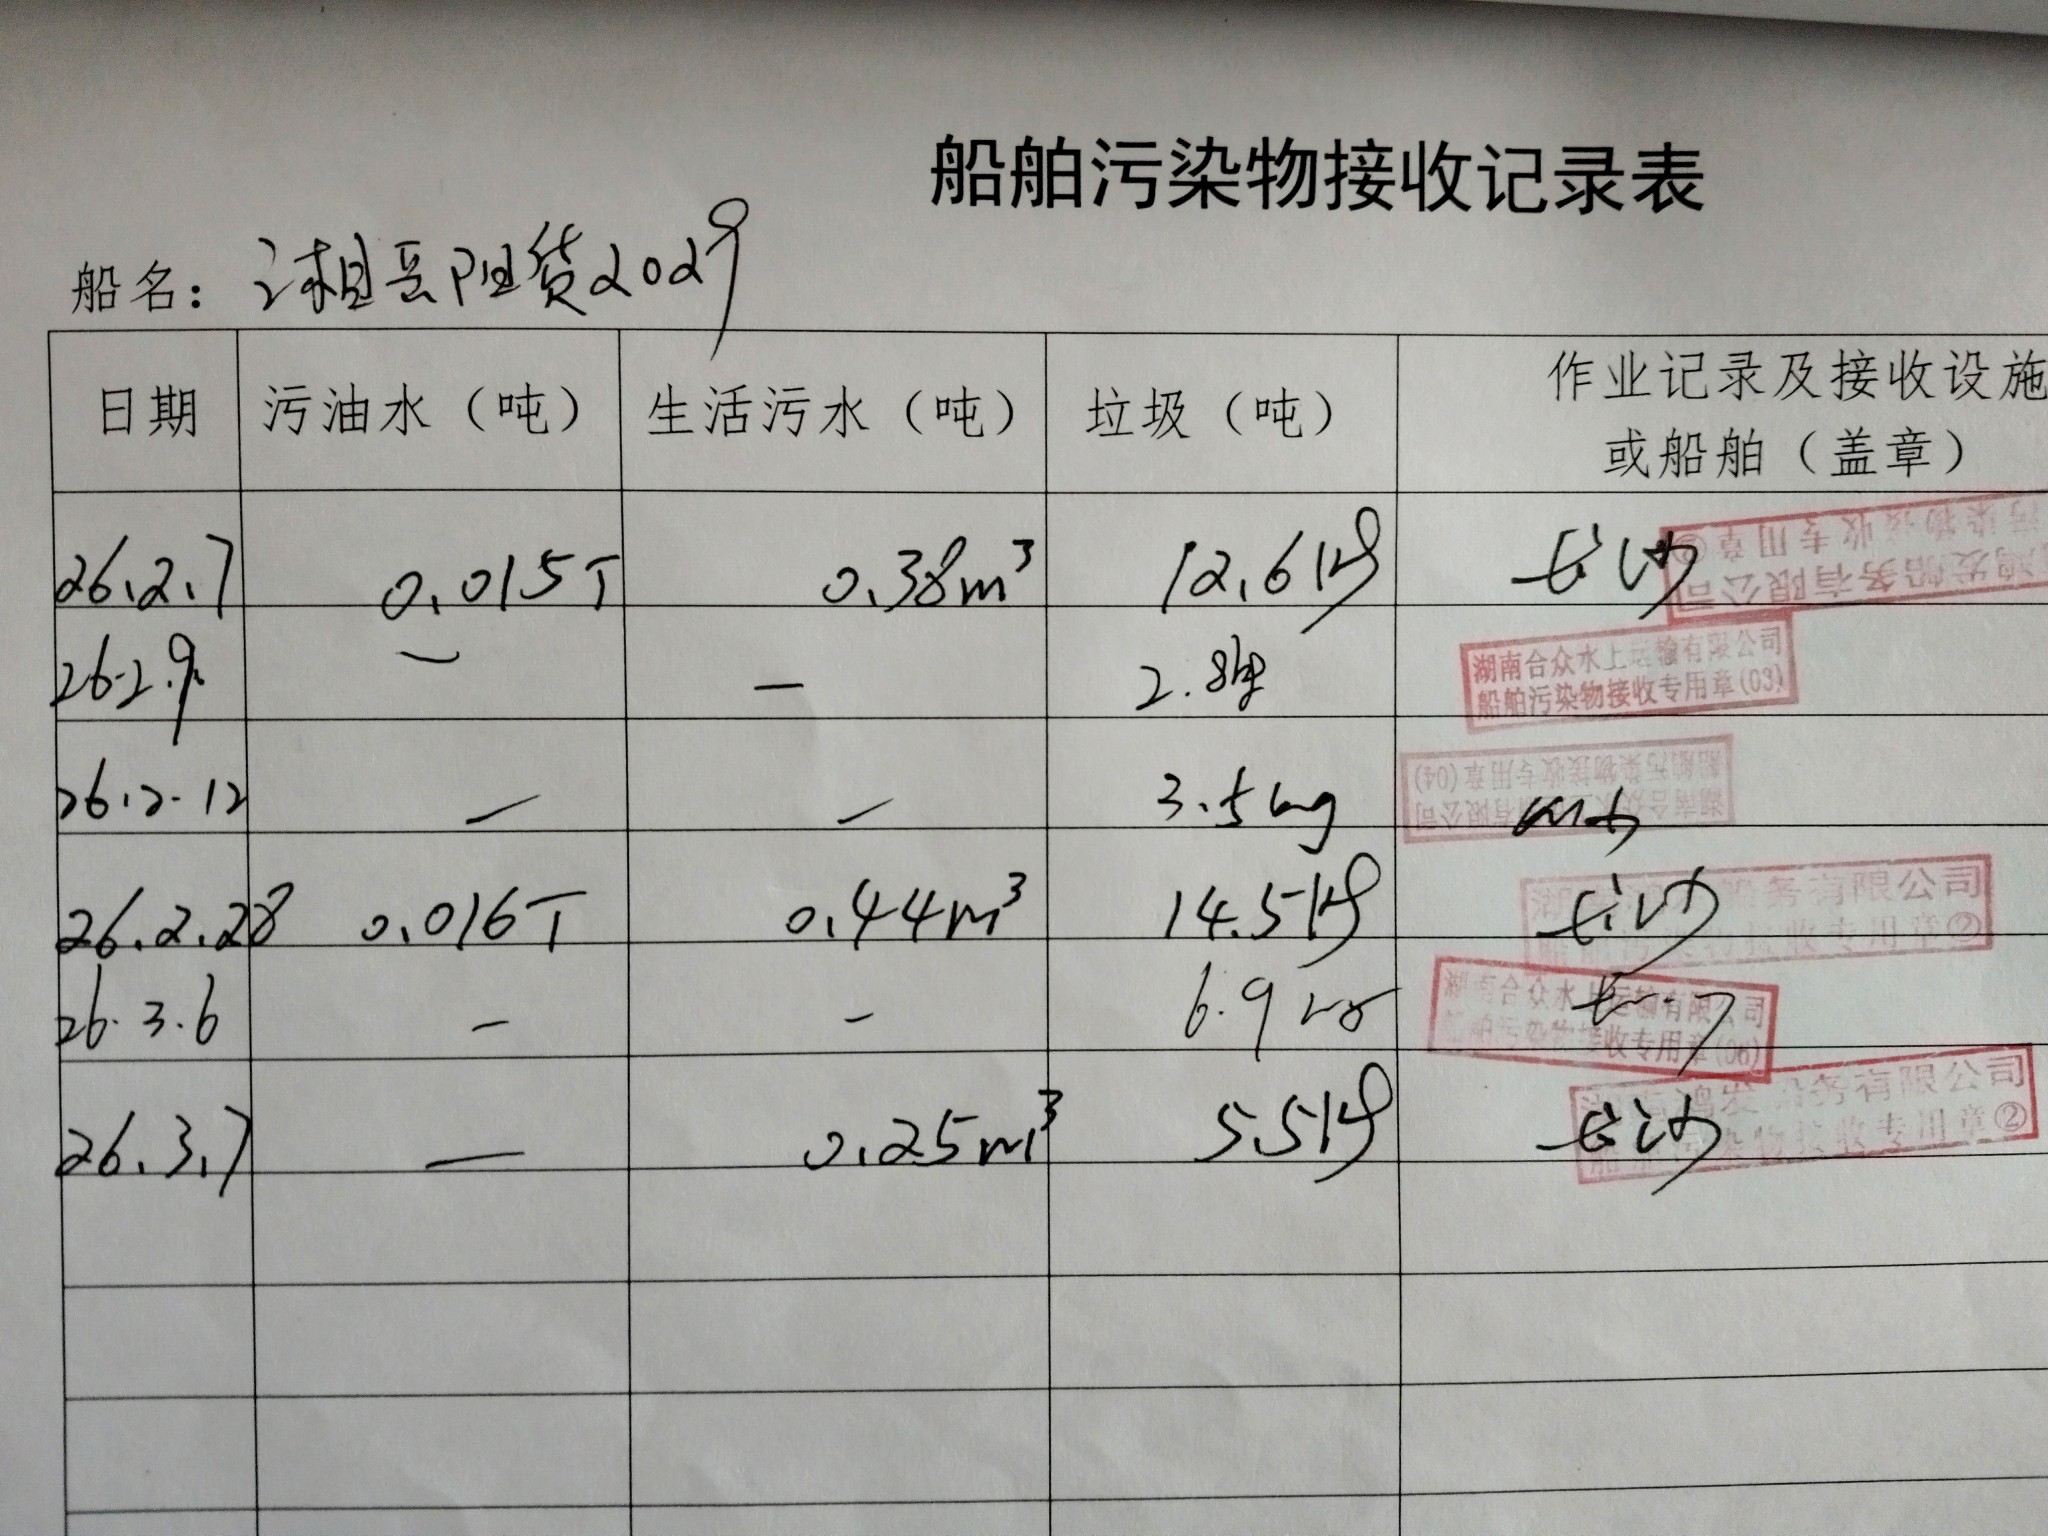 船舶污染物接收记录表
船名：湘岳阳货2029
日期 污油水（吨） 生活污水（吨） 垃圾（吨） 作业记录及接收设施
或船舶（盖章）
26.2.7 0.015T 0.38m³ 12.6kg 长沙
船务有限公司
污染物接收专用章②
26.2.9 — — 2.8kg
湖南合众水上运输有限公司
船舶污染物接收专用章(03)
26.2.12 — — 3.5kg
湖南合众水上运输有限公司
船舶污染物接收专用章(04)
26.2.28 0.016T 0.44m³ 14.5kg 长沙
船务有限公司
船舶污染物接收专用章②
26.3.6 — — 6.9kg
湖南合众水上运输有限公司
船舶污染物接收专用章(06)
26.3.7 — 0.25m³ 5.5kg 长沙
鸿发船务有限公司
船舶污染物接收专用章②